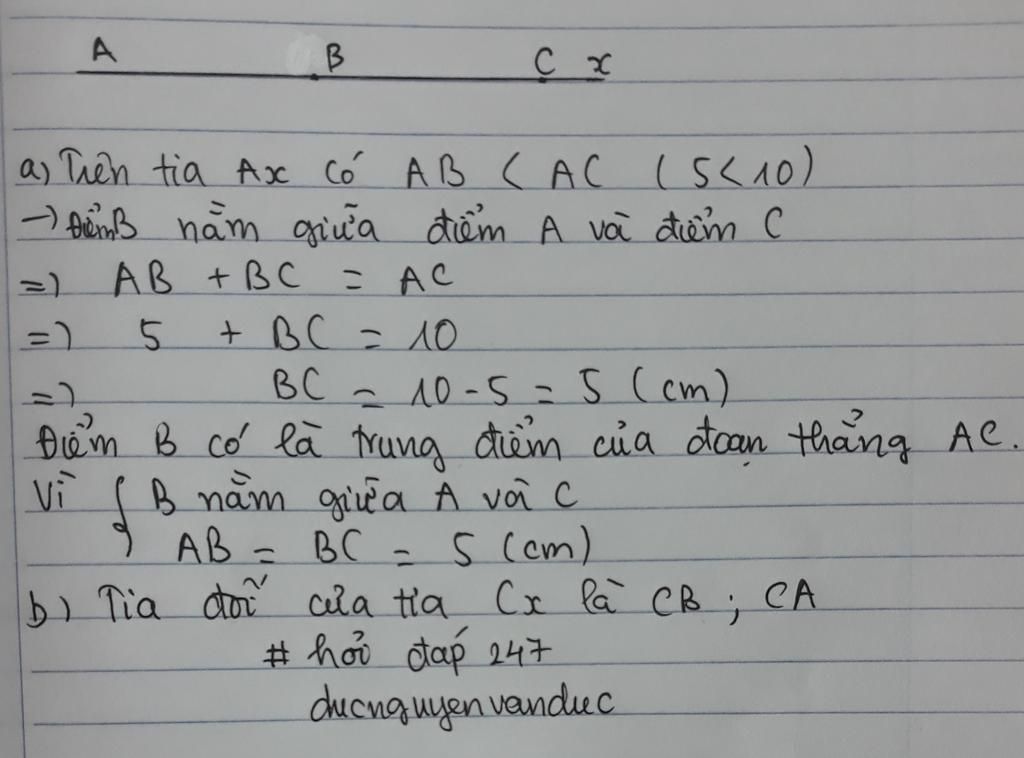 A B C x
a) Trên tia Ax có AB < AC (5<10)
→ Điểm B nằm giữa điểm A và điểm C
=> AB + BC = AC
=> 5 + BC = 10
=> BC = 10 - 5 = 5 (cm)
Điểm B có là trung điểm của đoạn thẳng AC.
Vì { B nằm giữa A và C
AB = BC = 5 (cm)
b) Tia đối của tia Cx là CB ; CA
# hỏi đáp 247
ducnguyenvanduc